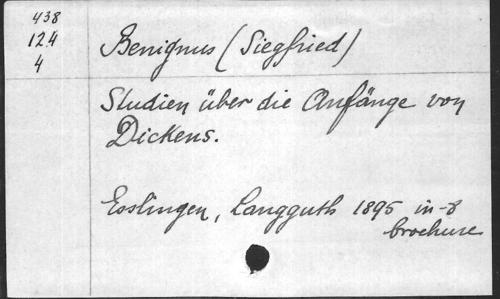 438
124
4
Benignus (Siegfried)
Studien über die Anfänge von
Dickens.
Esslingen, Langguth 1895 in-8
brochure